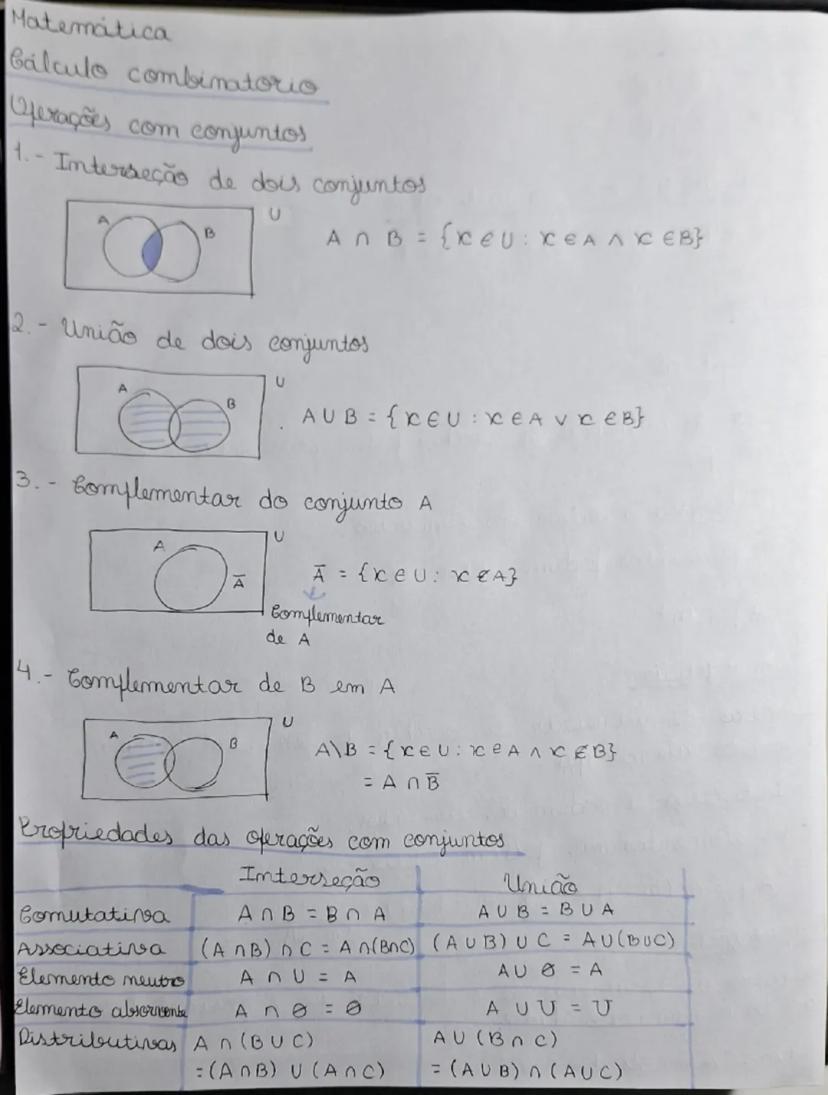 Matemática
Cálculo combinatorio
Operações com conjuntos
1.- Interseção de dois conjuntos
A B U
A ∩ B = {x ∈ U : x ∈ A ∧ x ∈ B}
2.- União de dois conjuntos
A B U
A ∪ B = {x ∈ U : x ∈ A ∨ x ∈ B}
3.- Complementar do conjunto A
A Ā U
Ā = {x ∈ U : x ∉ A}
Complementar
de A
4.- Complementar de B em A
A B U
A\B = {x ∈ U : x ∈ A ∧ x ∉ B}
= A ∩ B̄
Propriedades das operações com conjuntos
Interseção União
Comutativa A ∩ B = B ∩ A A ∪ B = B ∪ A
Associativa (A ∩ B) ∩ C = A ∩ (B ∩ C) (A ∪ B) ∪ C = A ∪ (B ∪ C)
Elemento neutro A ∩ U = A A ∪ ∅ = A
Elemento absorvente A ∩ ∅ = ∅ A ∪ U = U
Distributivas A ∩ (B ∪ C) A ∪ (B ∩ C)
= (A ∩ B) ∪ (A ∩ C) = (A ∪ B) ∩ (A ∪ C)